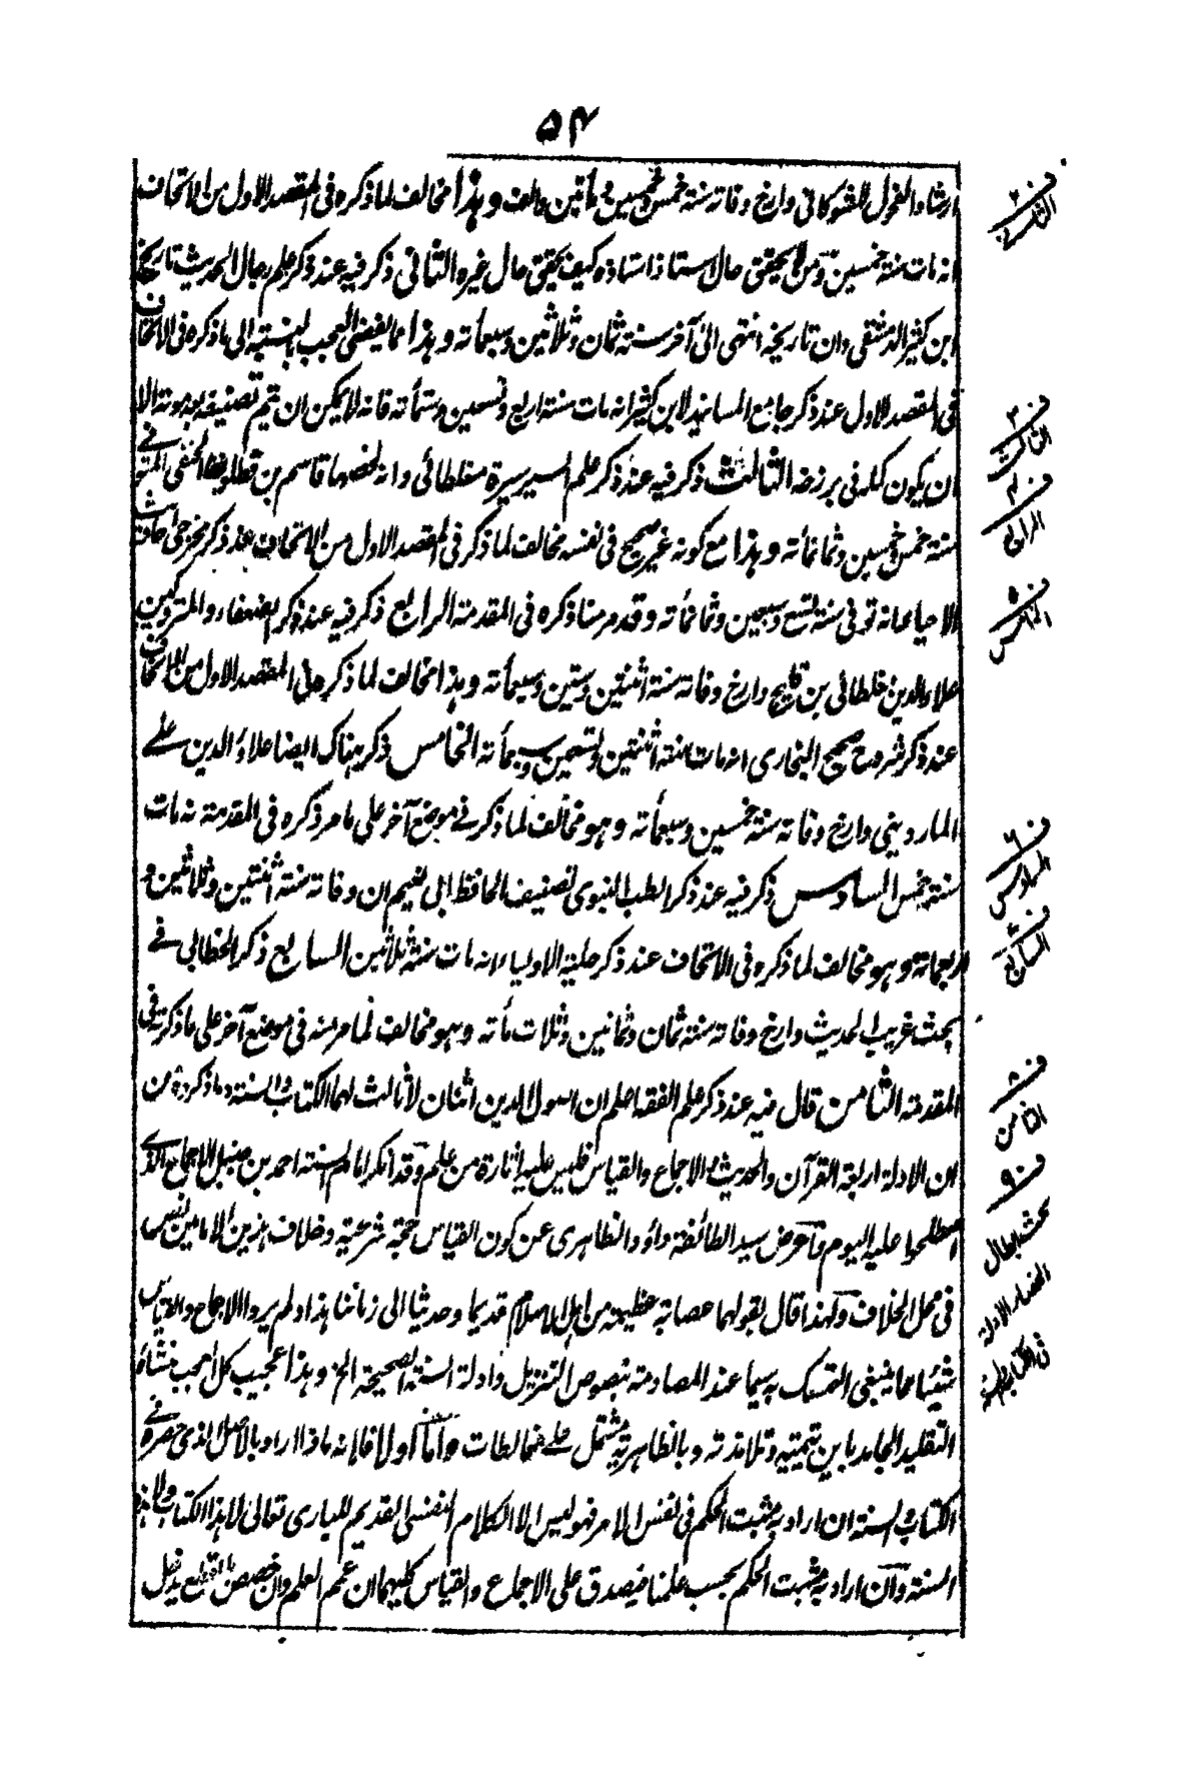 ٥٤
ارشاد الفحول للشوكاني وارخ وفاته سنة خمس وخمسين ومأتين والف وهذا مخالف لما ذكره في المقصد الاول من الاتحاف
انه مات سنة خمسين ومن لم يحقق حال استاذ استاذه كيف يحقق حال غيره الثاني ذكر فيه عند ذكر علم رجال الحديث تاريخ
ابن كثير الدمشقي وان تاريخه انتهى الى آخر سنة ثمان وثلاثين وسبعمأته وهذا مما يفضي العجب بالنسبة الى ما ذكره في الاتحاف
في المقصد الاول عند ذكر جامع المسانيد لابن كثير انه مات سنة اربع وتسعين وستمأته فانه لا يمكن ان يتم تصنيفه بعد موته الا
ان يكون كله في برزخه الثالث ذكر فيه عند ذكر علم السير سيرة مغلطائي وانه لخصها قاسم بن قطلوبغا الحنفي المتوفى
سنة خمس وخمسين وثمانمأته وهذا مع كونه غير صحيح في نفسه مخالف لما ذكر في المقصد الاول من الاتحاف عند ذكر مخرجي احاديث
الاحياء انه توفي سنة تسع وسبعين وثمانمأته وقد مر منا ذكره في المقدمة الرابع ذكر فيه عند ذكر الضعفاء والمتروكين
علاء الدين مغلطائي بن قليج وارخ وفاته سنة اثنتين وستين وسبعمأته وهذا مخالف لما ذكره في المقصد الاول من الاتحاف
عند ذكر شروح صحيح البخاري انه مات سنة اثنتين وتسعين وسبعمأته الخامس ذكر هناك ايضا علاؤ الدين علي
المارديني وارخ وفاته سنة خمسين وسبعمأته وهو مخالف لما ذكر في موضع آخر على ما مر ذكره في المقدمة انه مات
سنة خمس السادس ذكر فيه عند ذكر الطب النبوي تصنيف الحافظ ابي نعيم ان وفاته سنة اثنتين وثلاثين و
اربعمأته وهو مخالف لما ذكره في الاتحاف عند ذكر حلية الاولياء انه مات سنة ثلاثين السابع ذكر الخطابي في
بحث غريب الحديث وارخ وفاته سنة ثمان وثمانين وثلاث مأته وهو مخالف لما مر منه في موضع آخر على ما ذكرته في
المقدمة الثامن قال فيه عند ذكر علم الفقه اعلم ان اصول الدين اثنان لا ثالث لهما الكتاب والسنة وما ذكروه من
ان الادلة اربعة القرآن والحديث والاجماع والقياس فليس عليه اثارة من علم وقد انكر امام السنة احمد بن حنبل الاجماع الذي
اصطلحوا عليه اليوم واعرض سيد الطائفة داؤد الظاهري عن كون القياس حجة شرعية وخلاف هذين الامامين نص
في محل الخلاف ولهذا قال بقولهما عصابة عظيمة من اهل الاسلام قديما وحديثا الى زماننا هذا ولم يروا الاجماع والقياس
شيئا مما ينبغي التمسك به سيما عند المصادمة بنصوص التنزيل وادلة السنة الصحيحة الخ وهذا عجيب كل العجب منشائه
التقليد الجامد بابن تيمية وتلامذته وبالظاهرية مشتمل على مغالطات واما اولا فلانه ماذا اراد بالاصل الذي حصره في
الكتاب والسنة ان اراد به مثبت الحكم في نفس الامر فهو ليس الا الكلام النفسي القديم للباري تعالى لا هذا الكتاب ولا هذه
السنة وان اراد به مثبت الحكم بحسب علمنا فيصدق على الاجماع والقياس كليهما ان عمم العلم وان خصص بالقطع يدخل
ف ٢
الثاني
ف ٣
الثالث
ف ٤
الرابع
ف ٥
الخامس
ف ٦
السادس
ف ٧
السابع
ف ٨
الثامن
ف ٩
بحث ابطال
انحصار الادلة
في الكتاب والسنة